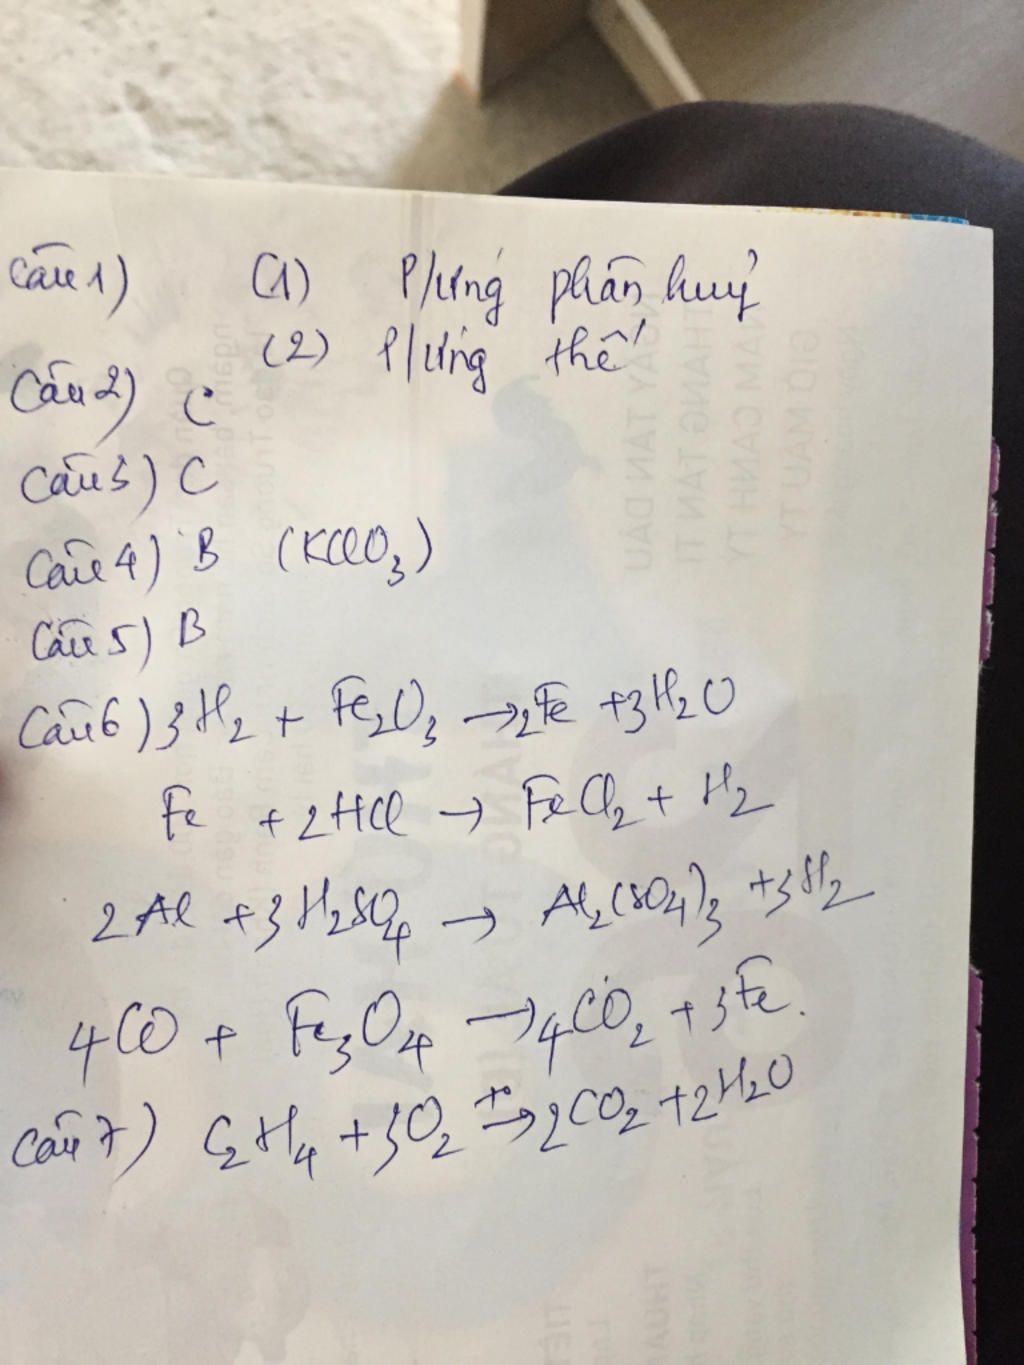 Câu 1) (1) P/ứng phân huỷ
(2) P/ứng thế
Câu 2) C
Câu 3) C
Câu 4) B (KClO3)
Câu 5) B
Câu 6) 3H2 + Fe2O3 → 2Fe + 3H2O
Fe + 2HCl → FeCl2 + H2
2Al + 3H2SO4 → Al2(SO4)3 + 3H2
4CO + Fe3O4 → 4CO2 + 3Fe.
Câu 7) C2H4 + 3O2 t° → 2CO2 + 2H2O